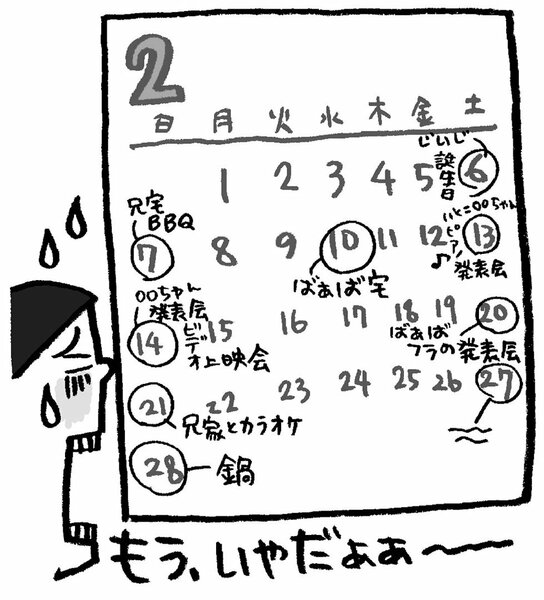 2
日 月 火 水 木 金 土
じいじ
誕生日
1 2 3 4 5 6
兄宅
BBQ
いとこ〇〇ちゃん
ピアノ♪
発表会
7 8 9 10 11 12 13
ばあば宅
〇〇ちゃん
発表会
ビデオ上映会
14 15 16 17 18 19 20
ばあば
フラの発表会
21 22 23 24 25 26 27
兄家とカラオケ
28 鍋
もう、いやだぁぁ〜